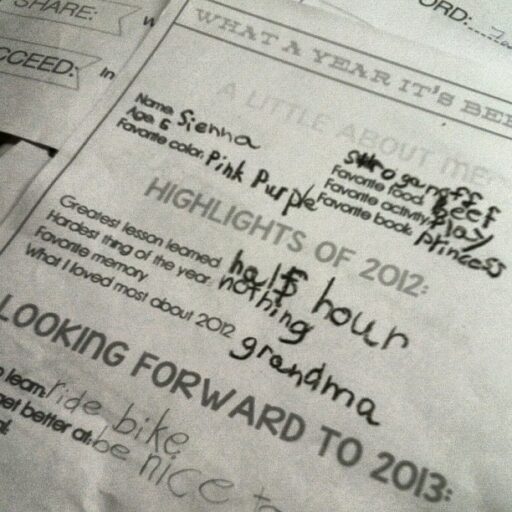 SHARE:
CCEED:
In
ORD:
WHAT A YEAR IT'S BEE
A LITTLE ABOUT ME:
Name: Sienna
Age: 6
Favorite color: Pink Purple
stroganoff
Favorite food: Beef
Favorite activity: Play
Favorite book: princess
HIGHLIGHTS OF 2012:
Greatest lesson learned: half hour
Hardest thing of the year: nothing
Favorite memory
What I loved most about 2012: grandma
LOOKING FORWARD TO 2013:
o learn: ride bike
get better at: be nice to